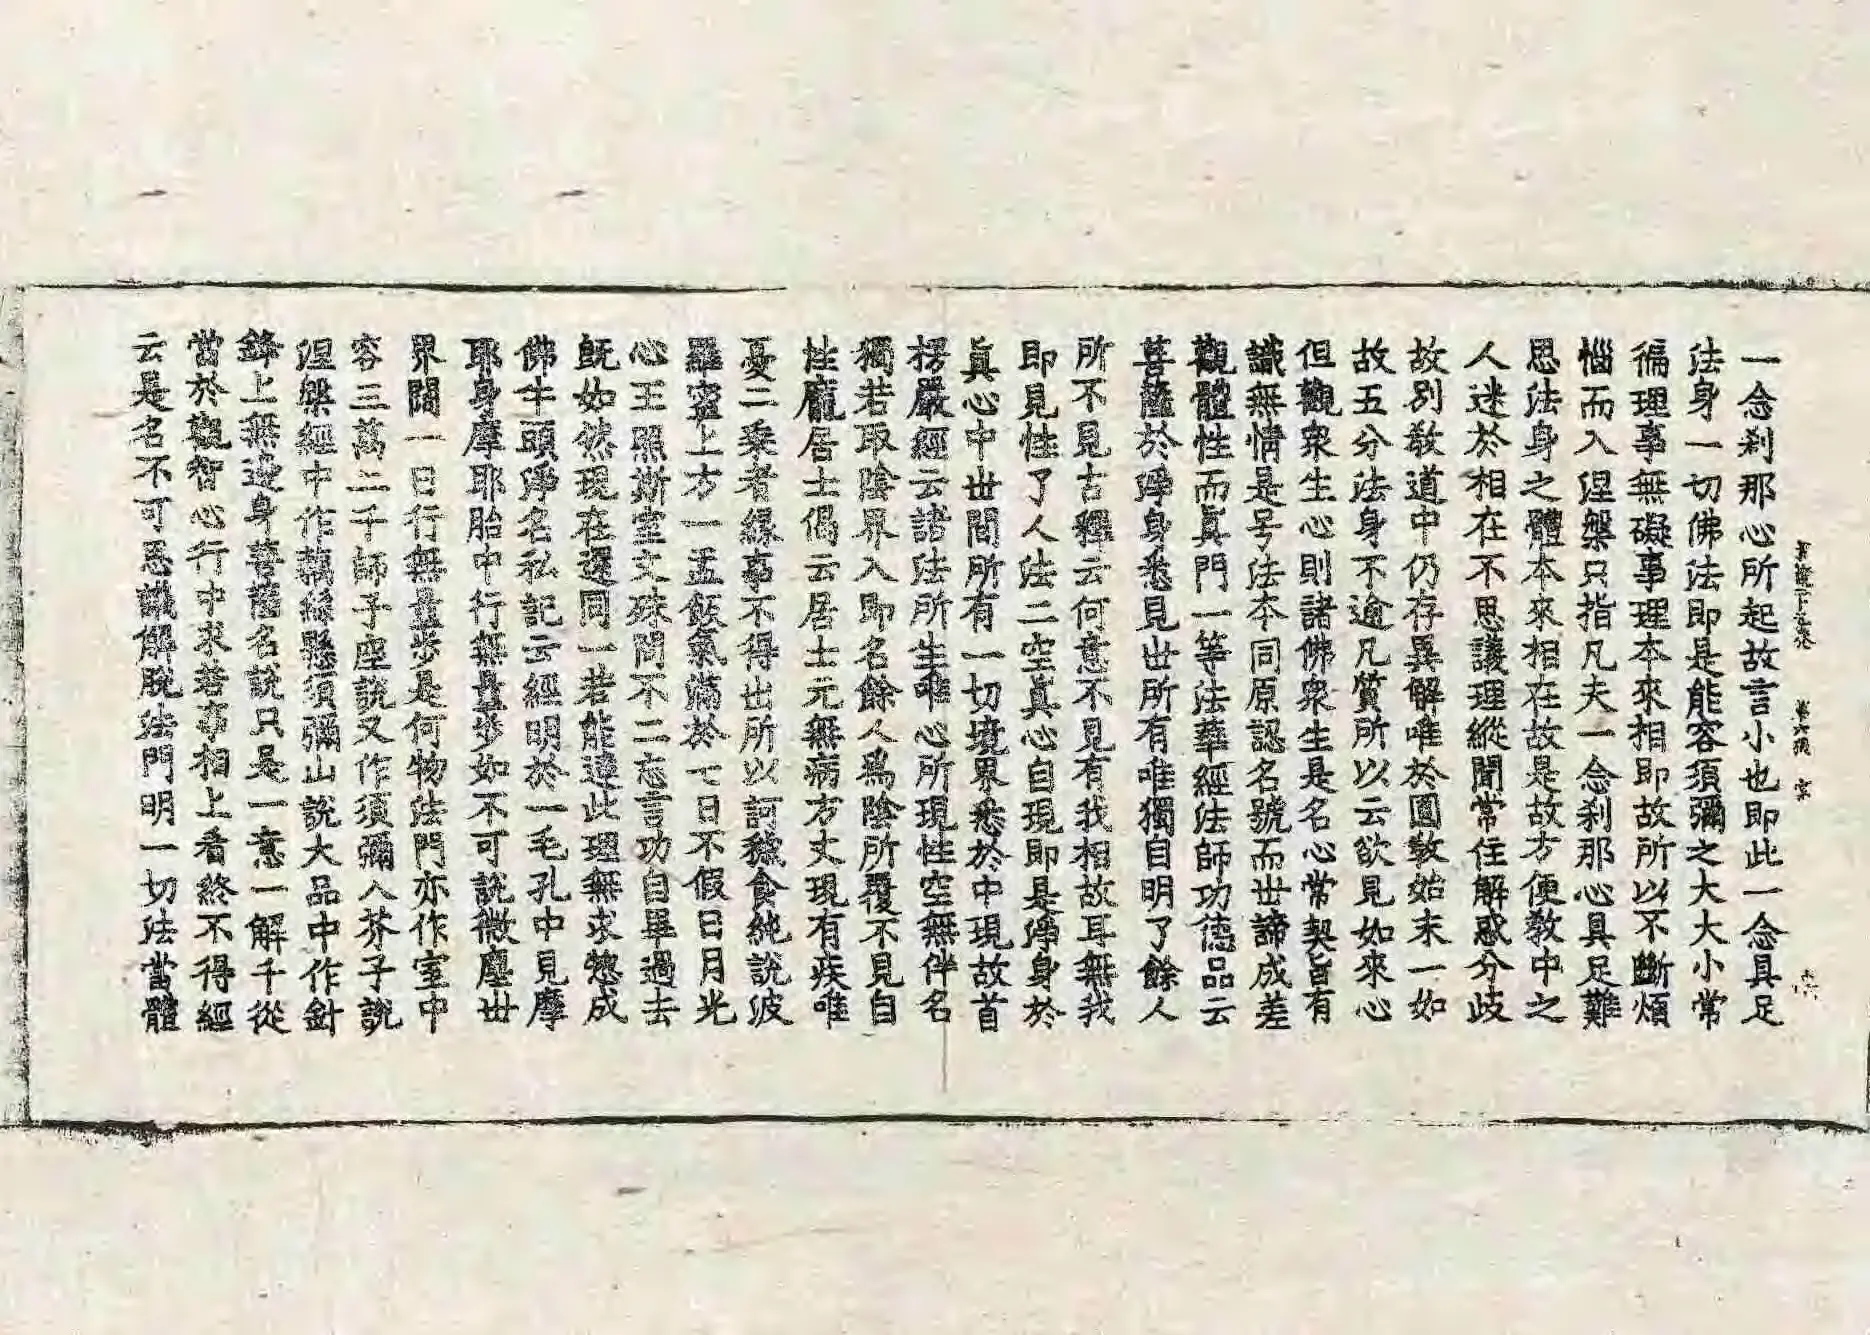 一念刹那心所起故言小也即此一念具足
法身一切佛法即是能容須彌之大大小常
徧理事無礙事理本來相即故所以不斷煩
惱而入涅槃只指凡夫一念刹那心具足難
思法身之體本來相在故是故方便敎中之
人迷於相在不思議理縱聞常住解惑分歧
故別敎道中仍存異解唯於圓敎始末一如
故五分法身不逾凡質所以云欲見如來心
但觀衆生心則諸佛衆生是名心常契旨有
識無情是号法本同原認名號而世諦成差
觀體性而眞門一等法華經法師功德品云
菩薩於淨身悉見世所有唯獨自明了餘人
所不見古釋云何意不見有我相故耳無我
即見性了人法二空真心自現即是淨身於
眞心中世間所有一切境界悉於中現故首
楞嚴經云諸法所生唯心所現性空無伴名
獨若取陰界入即名餘人爲陰所覆不見自
性龐居士偈云居士元無病方丈現有疾唯
憂二乘者緣事不得出所以訶搋食純說波
羅蜜上方一盂飯氣滿於七日不假日月光
心王照斯室文殊問不二忘言功自畢過去
旣如然現在還同一若能達此理無求惣成
佛牛頭淨名私記云經明於一毛孔中見摩
耶身摩耶胎中行無量步如不可說微塵世
界闊一日行無量步是何物法門亦作室中
容三萬二千師子座說又作須彌入芥子說
涅槃經中作藕絲懸須彌山說大品中作針
鋒上無邊身菩薩名說只是一意一解千從
當於觀智心行中求若事相上看終不得經
云是名不可思議解脫法門明一切法當體